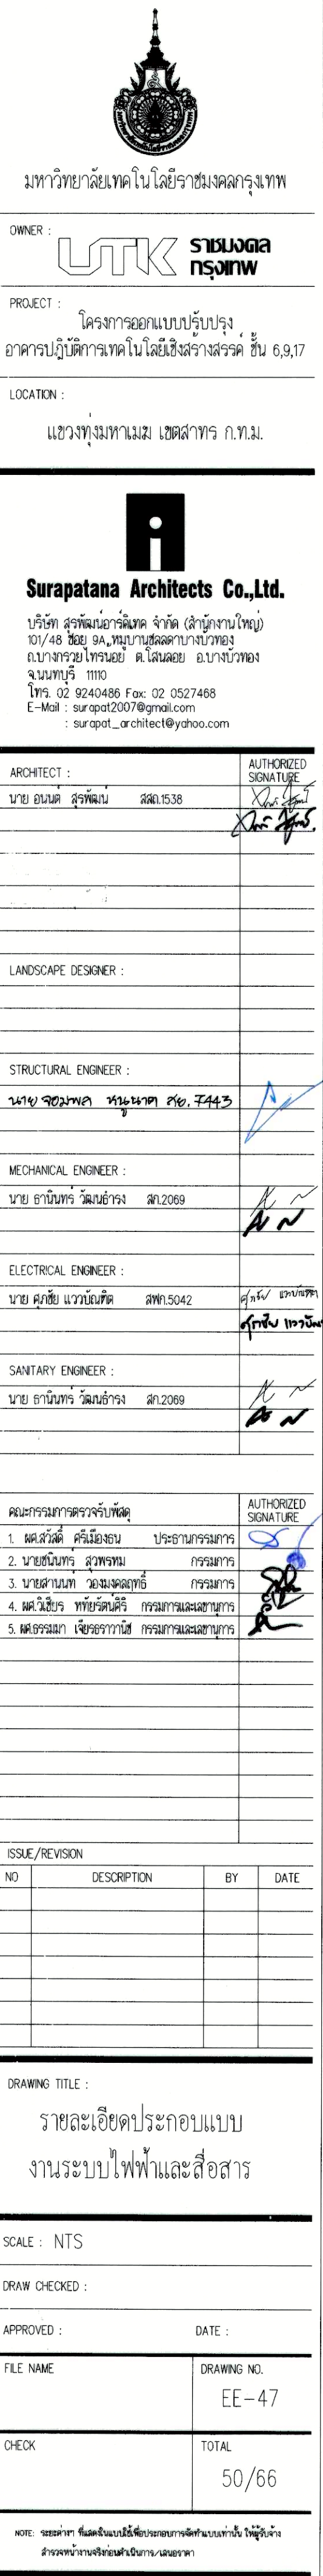 มหาวิทยาลัยเทคโนโลยีราชมงคลกรุงเทพ
OWNER :
UTK ราชมงคล
กรุงเทพ
PROJECT :
โครงการออกแบบปรับปรุง
อาคารปฏิบัติการเทคโนโลยีเชิงสร้างสรรค์ ชั้น 6,9,17
LOCATION :
แขวงทุ่งมหาเมฆ เขตสาทร ก.ท.ม.
Surapatana Architects Co.,Ltd.
บริษัท สุรพัฒน์อาร์คิเทค จำกัด (สำนักงานใหญ่)
101/48 ซอย 9A หมู่บานชลลดาบางบัวทอง
ถ.บางกรวยไทรน้อย ต.โสนลอย อ.บางบัวทอง
จ.นนทบุรี 11110
โทร. 02 9240486 Fax: 02 0527468
E-Mail : surapat2007@gmail.com
: surapat_architect@yahoo.com
ARCHITECT :
AUTHORIZED
SIGNATURE
นาย อนนต์ สุรพัฒน์ สสถ.1538
LANDSCAPE DESIGNER :
STRUCTURAL ENGINEER :
นาย จอมพล หนูนาค สย. 7443
MECHANICAL ENGINEER :
นาย ธานินทร์ วัฒนธำรง สก.2069
ELECTRICAL ENGINEER :
นาย ศุภชัย แววบัณฑิต สฟก.5042
SANITARY ENGINEER :
นาย ธานินทร์ วัฒนธำรง สก.2069
คณะกรรมการตรวจรับพัสดุ
AUTHORIZED
SIGNATURE
1. ผศ.สวัสดิ์ ศรีเมืองธน ประธานกรรมการ
2. นายชนินทร์ สุวพรหม กรรมการ
3. นายศานนท์ วองมงคลฤทธิ์ กรรมการ
4. ผศ.วิเชียร หทัยรัตน์ศิริ กรรมการและเลขานุการ
5. ผศ.ธรรมมา เจียรธราวานิช กรรมการและเลขานุการ
ISSUE/REVISION
NO DESCRIPTION BY DATE
DRAWING TITLE :
รายละเอียดประกอบแบบ
งานระบบไฟฟ้าและสื่อสาร
SCALE : NTS
DRAW CHECKED :
APPROVED : DATE :
FILE NAME DRAWING NO.
EE-47
CHECK TOTAL
50/66
NOTE: ระยะต่างๆ ที่แสดงในแบบใช้เพื่อประกอบการจัดทำแบบเท่านั้น ให้ผู้รับจ้าง
สำรวจหน้างานจริงก่อนดำเนินการ/เสนอราคา